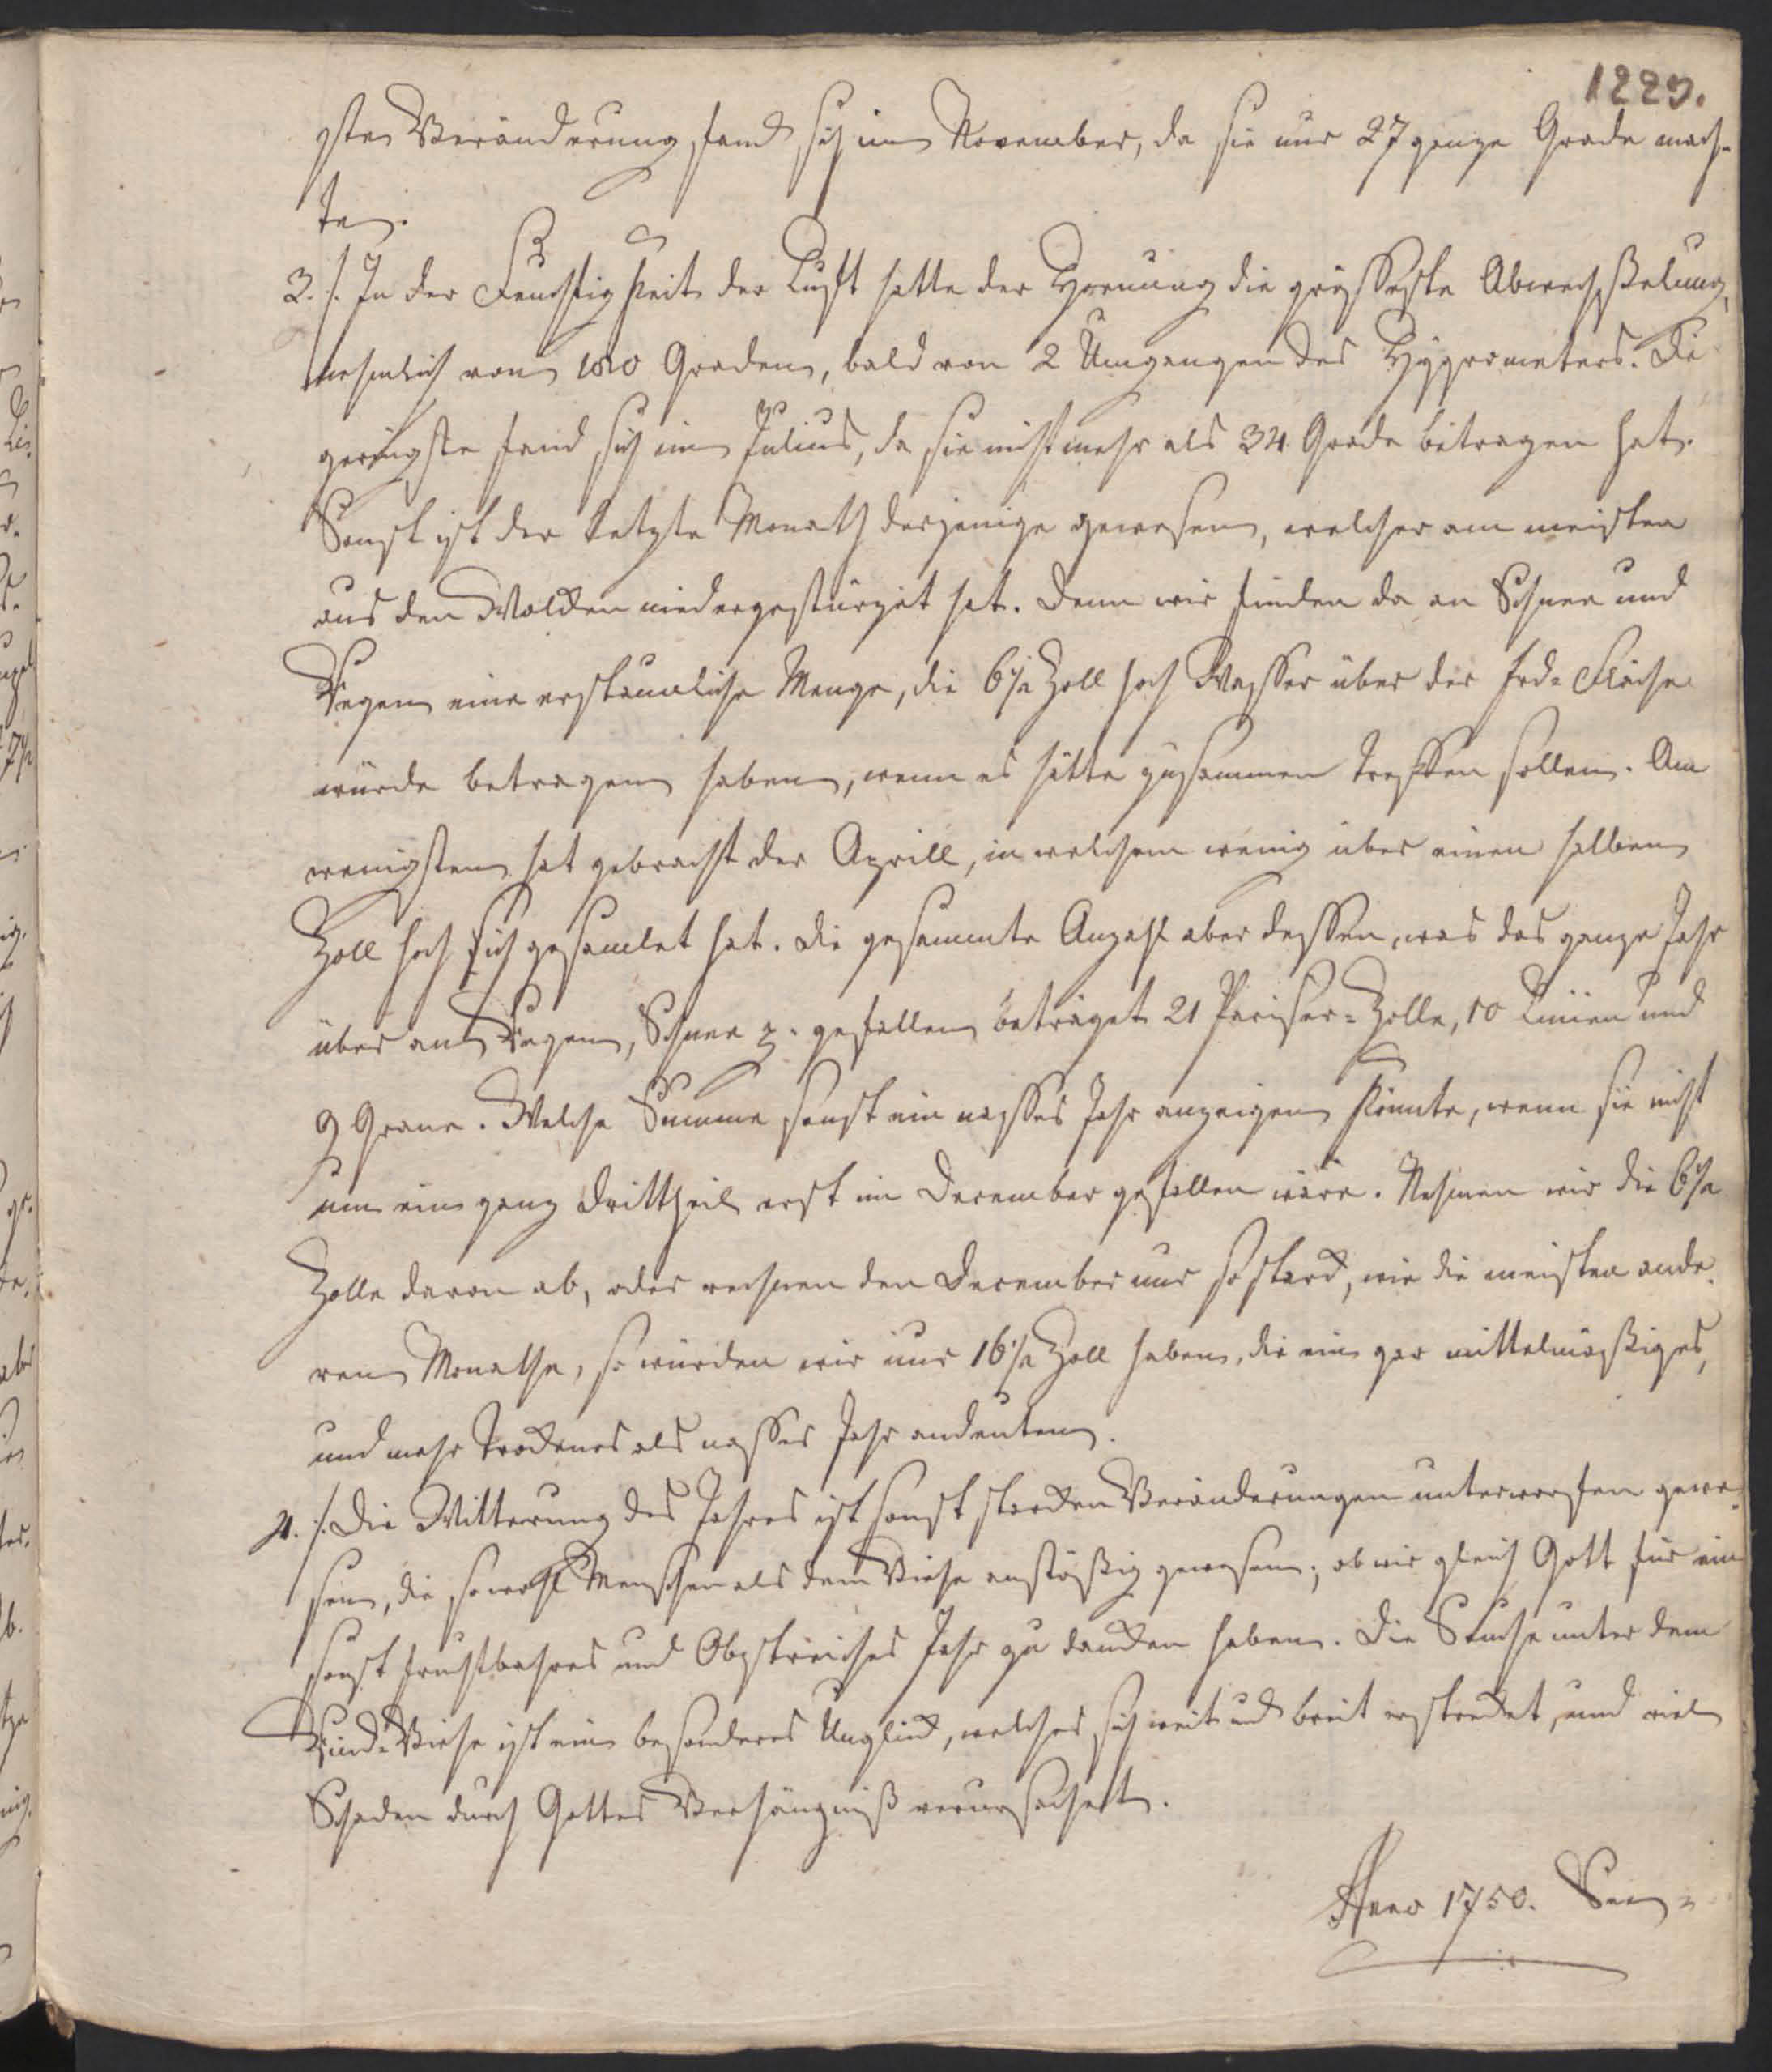 1229.
ste Veränderung fand sich im November, da sie nur 27 ganze Grade mach-
te.
3. /. In der Feuchtigkeit der Luft hatte der Hornung die grösseste Abwechßelung,
nehmlich von 180 Graden, bald von 2 Umgangen des Hygrometers. Die
geringste fand sich im Julius, da sie nicht mehr als 34 Grade betragen hat.
Sonst ist der letzte Monath derjenige gewesen, welcher am meisten
aus den Wolcken niedergestürzet hat. Denn wir finden da an Schnee und
Regen eine erstaunliche Menge, die 6 1/2 Zoll hoch Wasser über der Erd-Fläche
würde betragen haben, wenn es hätte zusammen treffen sollen. Am
wenigsten hat gebracht der Aprill, in welchem wenig über einen halben
Zoll hoch sich gesamlet hat. Die gesammte Anzahl aber dessen, was das ganze Jahr
über an Regen, Schnee gefallen beträget 21 Pariser-Zolle, 10 Linien und
9 Grane. Welche Summe sonst ein nasses Jahr anzeigen könnte, wenn sie nicht
um ein ganz Drittheil erst im December gefallen wäre. Nehmen wir die 6 1/2
Zolle davon ab, oder rechnen den December nur so starck, wie die meisten ande-
ren Monathe, so würden wir nur 16 1/2 Zoll haben, die ein gar mittelmäßiges,
und mehr trockenes als nasses Jahr andeuten.
4. /. Die Witterung des Jahres ist sonst starcken Veränderungen unterworfen gewe-
sen, die sowohl Menschen als dem Viehe anstößig gewesen; ob wir gleich Gott für ein
sonst fruchtbahres und Obstreiches Jahr zu dancken haben. Die Seuche unter dem
Rind-Viehe ist ein besonderes Unglück, welches sich weit und breit erstrecket, und viel
Schaden durch Gottes Verhängniß verursachet.
Anno 1750.